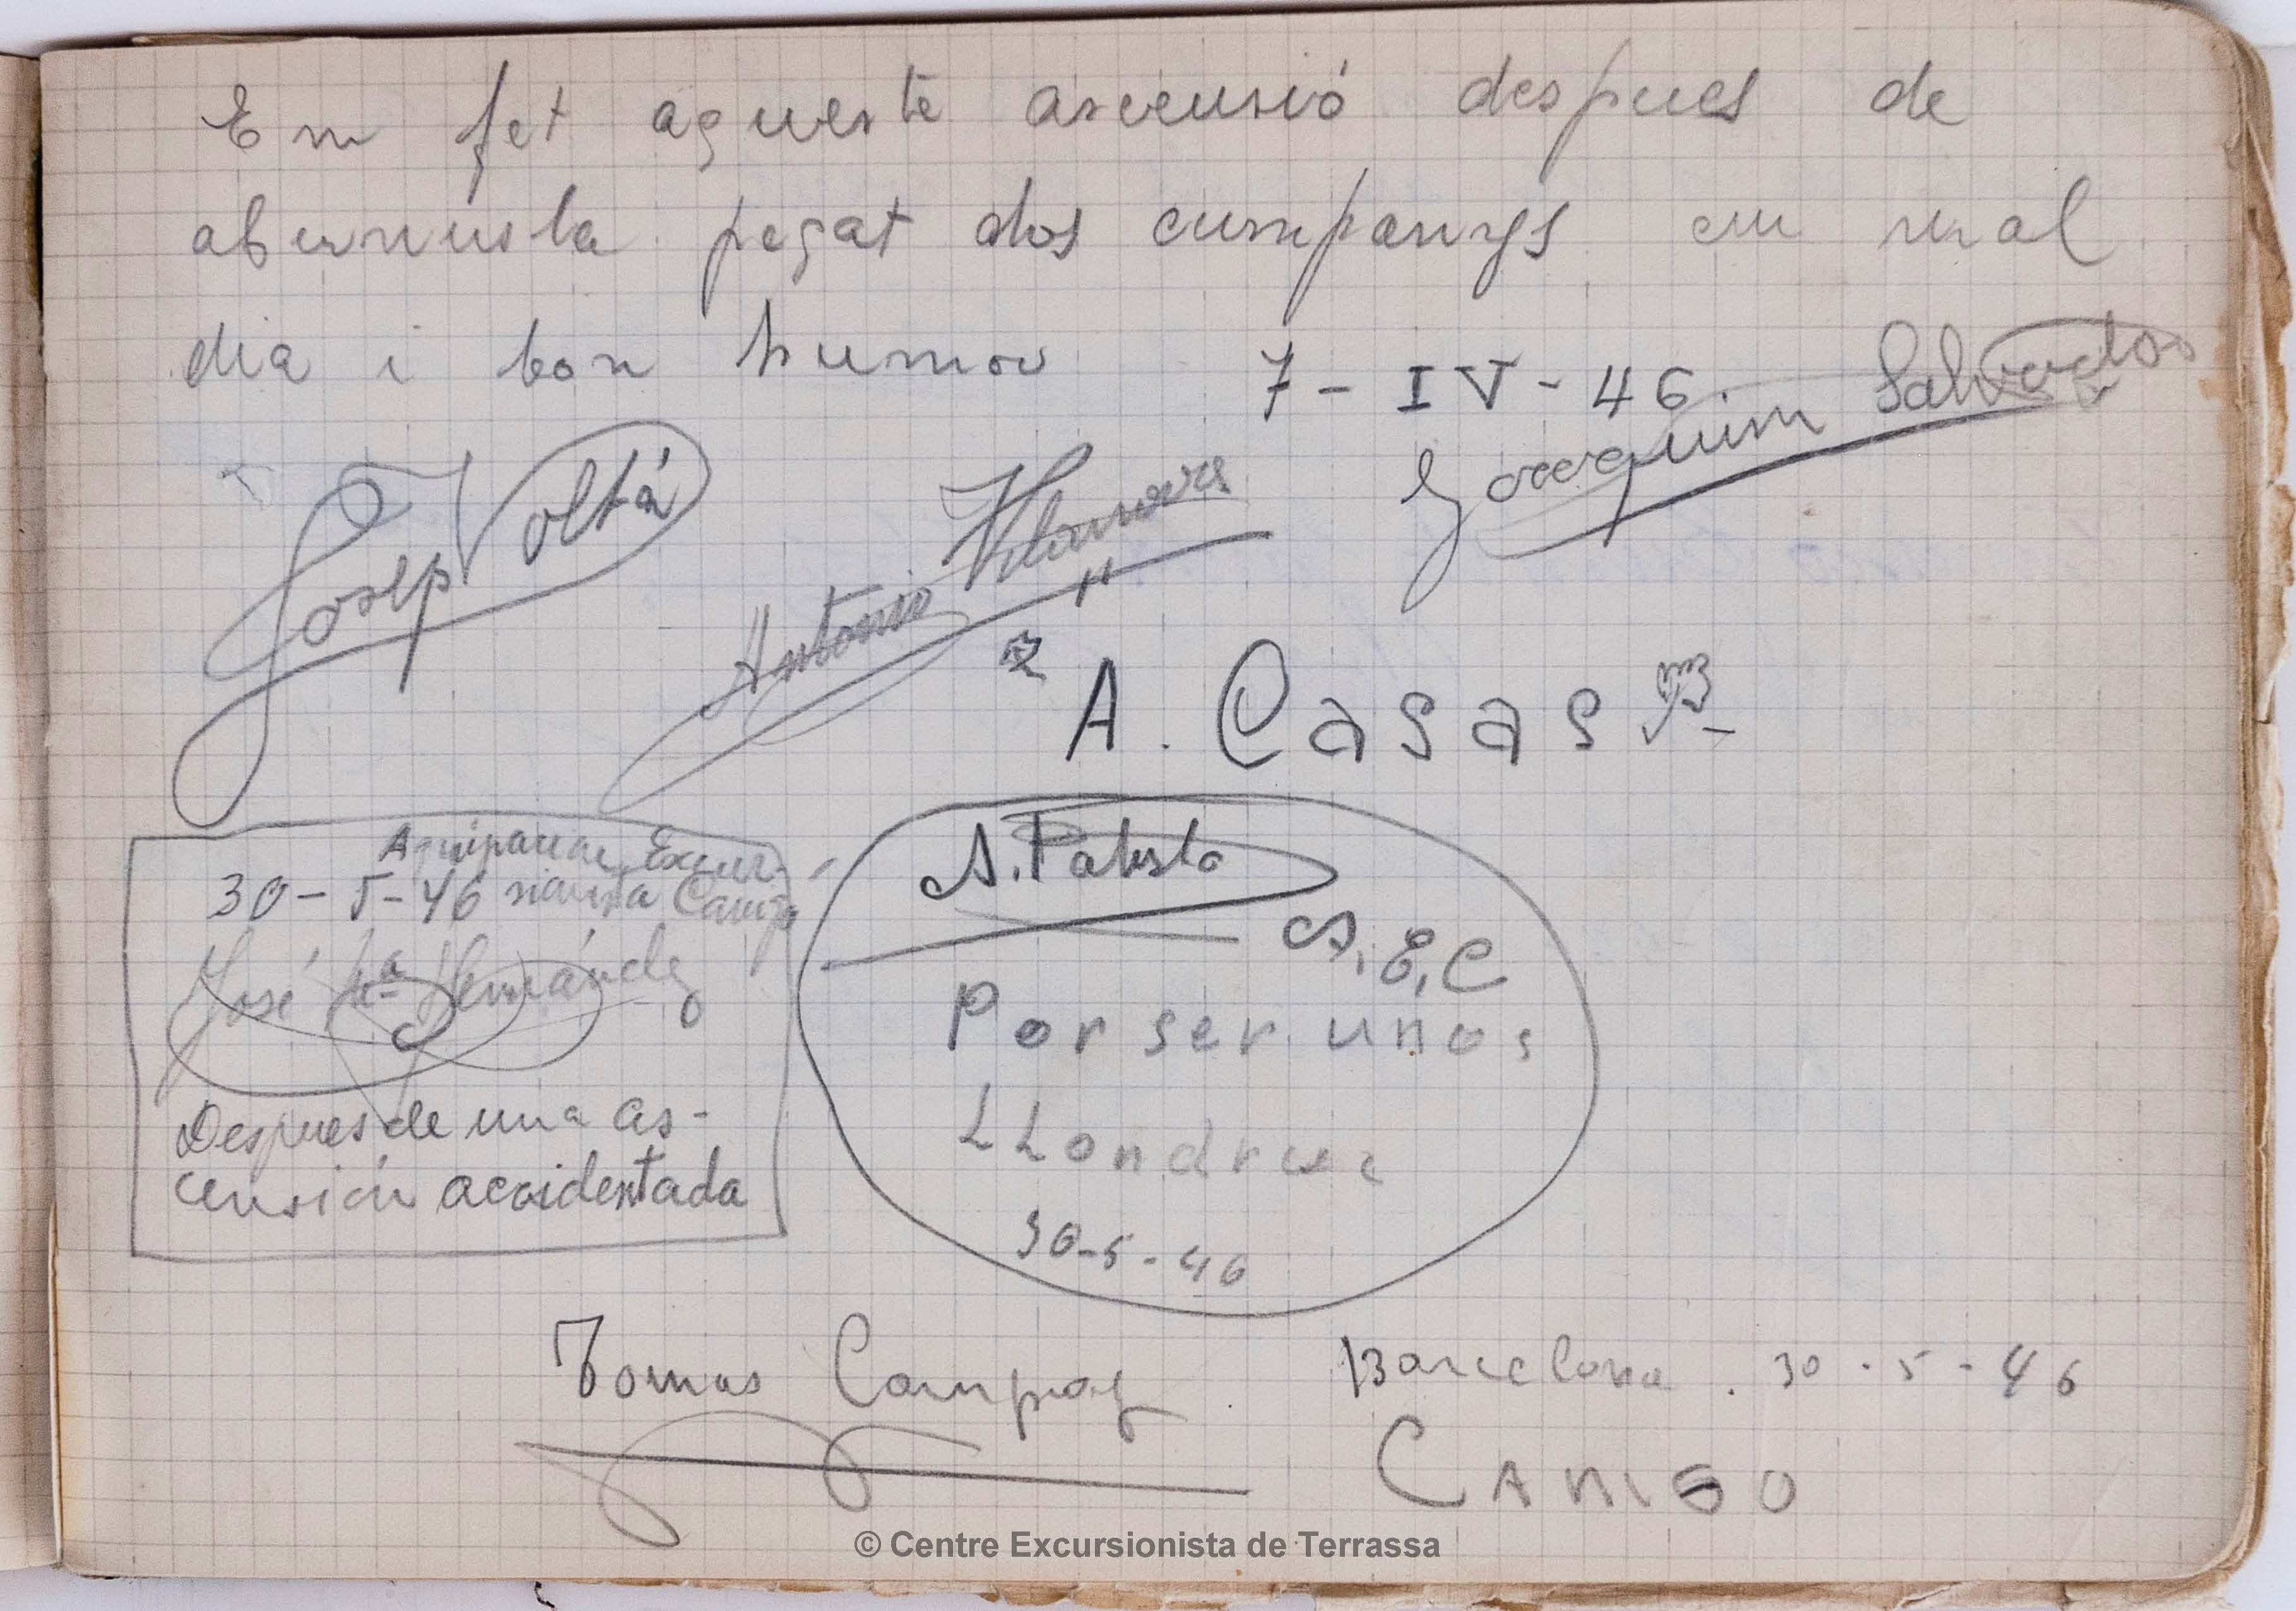 Em fet aqueste ascensió despues de
abernusla pegat dos cumpanys em mal
dia i bon humor
7-IV-46.
Joaquim Salvador
Josep Voltá
Antonio Vilanova
A. Casas
Agrupacion Excur-
30-5-46 sionista Canigo
José Mª Hernández
Despues de una as-
censión accidentada
A.E.C
Por ser unos
LLondrus
30-5-46
Tomas Campoy
Barcelona. 30-5-46
CANIGO
© Centre Excursionista de Terrassa